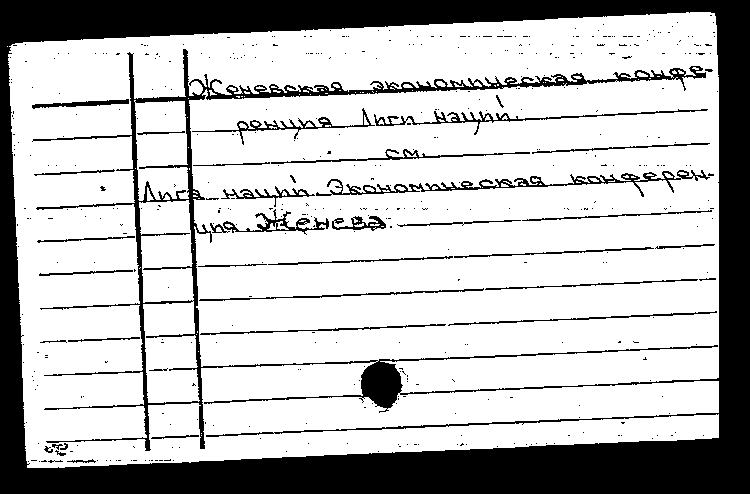 Женевская экономическая конфе-
ренция Лиги наций.
см.
Лига наций. Экономическая конферен-
ция. Женева.